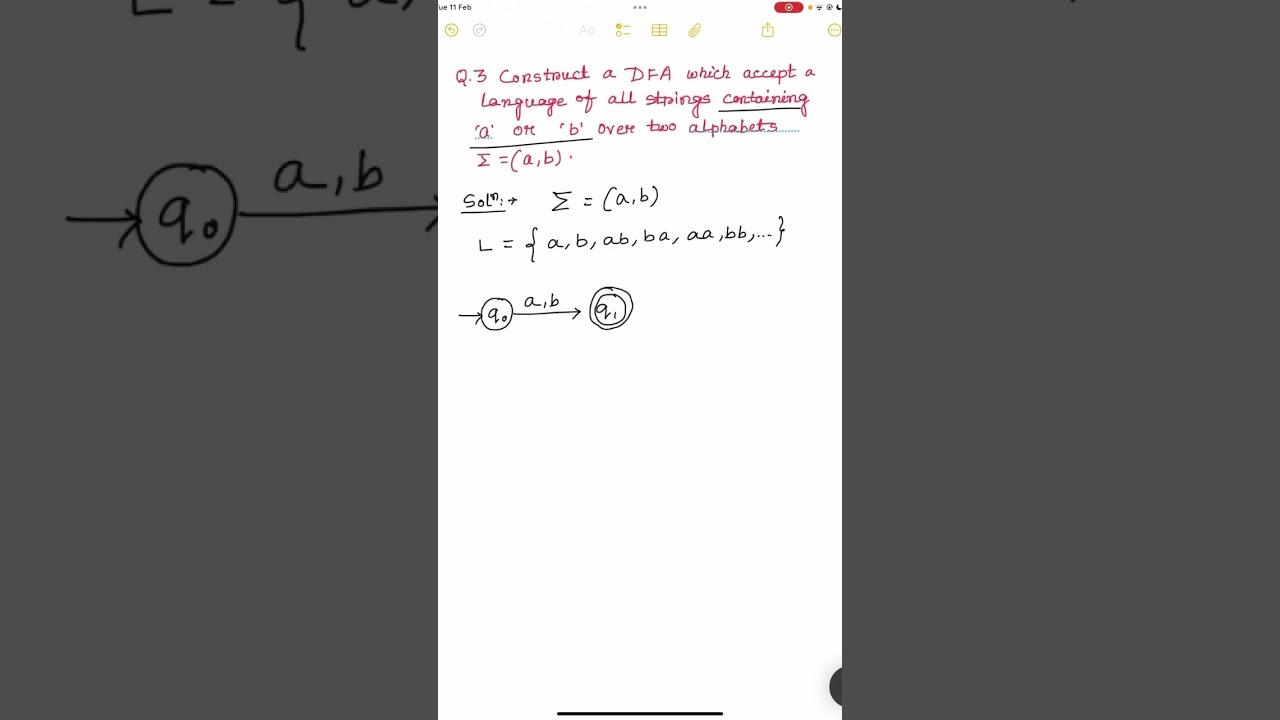 Tue 11 Feb
Aa
Q.3 Construct a DFA which accept a
language of all strings containing
'a' or 'b' over two alphabets
Σ =(a,b).
Solⁿ:→ Σ = (a,b)
L = { a, b, ab, ba, aa, bb, ...}
q₀ a,b q₁
q₀ a,b